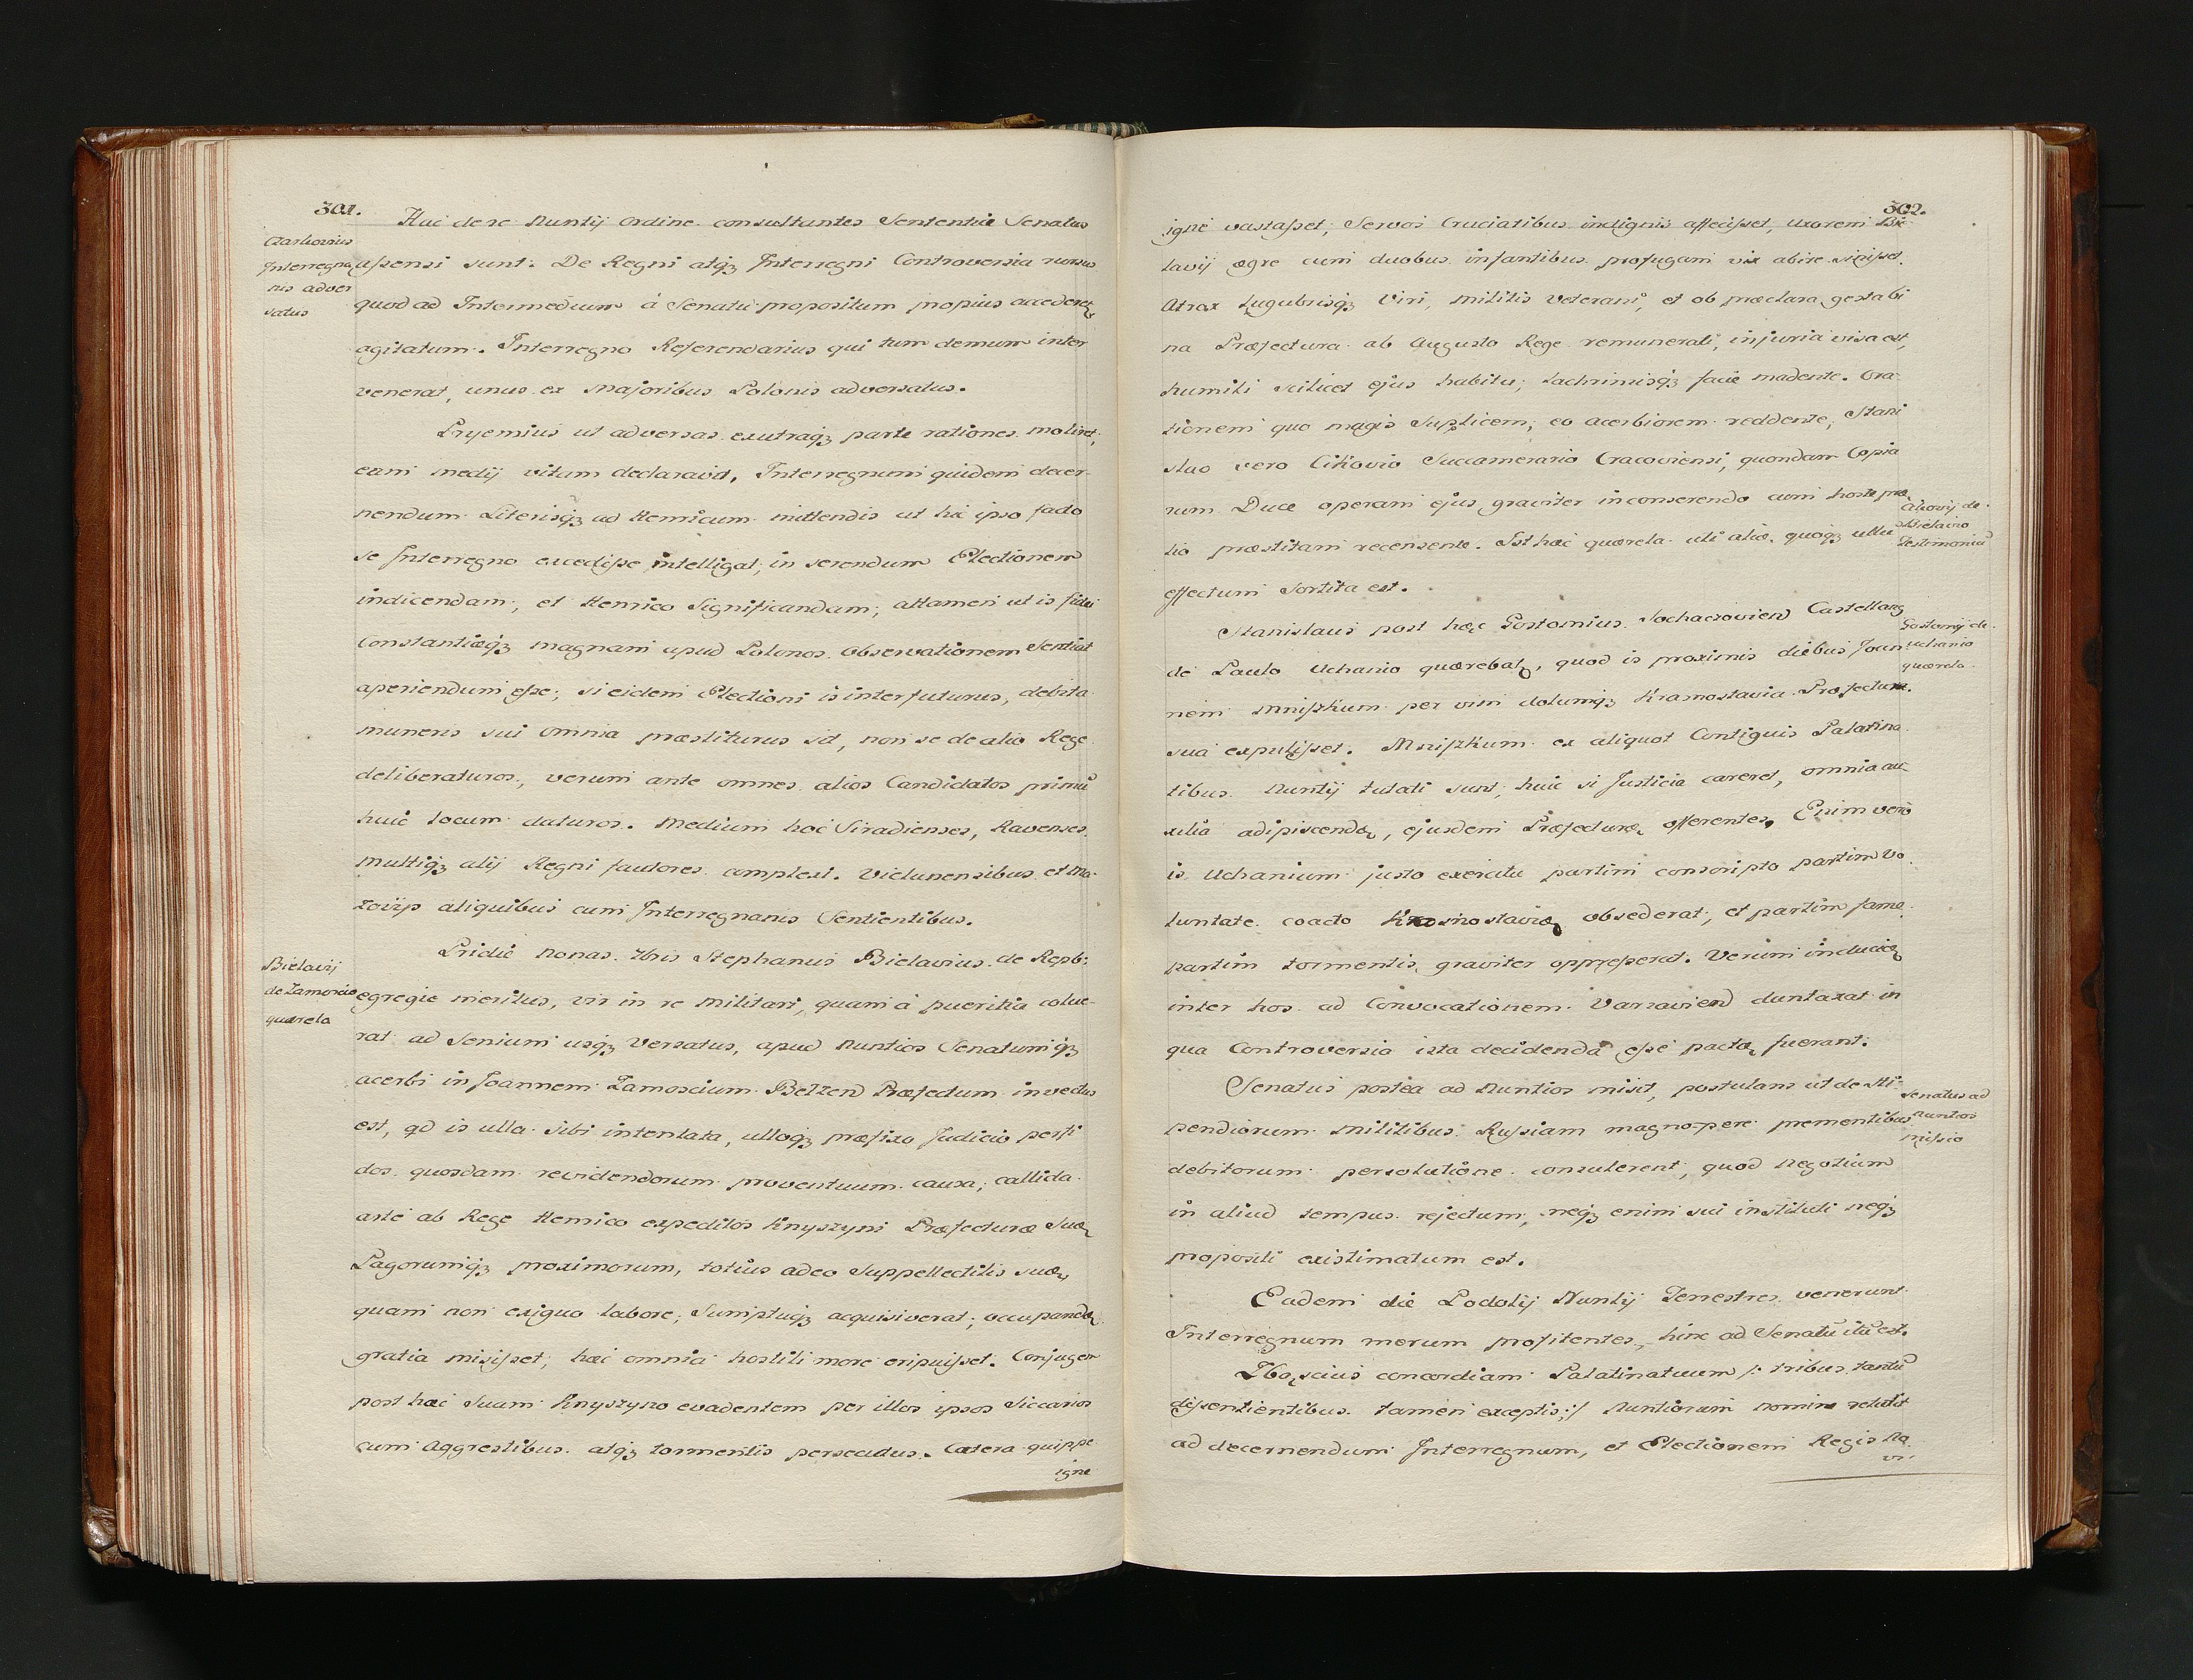 301.
Hac de re Nuntij ordine consultantes Sententiæ Senatus
Czarkovius
Interregna
nis adver
satus
assensi sunt. De Regni atq3 Interregni Controversia rursus
quod ad Intermedium à Senatu propositum propius accederet,
agitatum. Interregno Referendarius qui tum demum inter
venerat, unus ex Majoribus Polonis adversatus.
Pryemius ut adversas exutraq3 parte rationes moliret,
eam medij vitam declaravit, Interregnum quidem decer-
nendum Literisq3 ad Henricum mittendis ut hic ipso facto
se Interregno excedisse intelligat, in serendum Electionem
indicendam, et Henrico Significandam; attamen ut is fidei
Constantiæq3 magnam apud Polonos Observationem Sentiat
aperiendum esse; si eidem Electioni is interfuturus, debita
muneris sui omnia præstiturus sit, non se de alio Rege
deliberaturos, verum ante omnes alios Candidatos primũ
huic locum daturos. Medium hoc Siradienses, Ravenses
multiq3 alij Regni fautores amplexi. Vielunensibus et Ma-
zovijs aliquibus cum Interregnanis Sentientibus.
Bielavij
de Zamoscio
quærela
Pridie Nonas 7bris Stephanus Bielavius de Repb:
egregie meritus, vir in re militari, quam à pueritia colue-
rat ad Senium usq3 versatus, apud Nuntios Senatumq3
acerbi in Joannem Zamoscium Belzen Præfectum invectus
est, qd is ulla sibi intentata, ulloq3 præfixo Judicio perfi
dos quosdam revidendorum proventuum causa, callida
arte ab Rege Henrico expeditos Knyszyni Præfecturæ Suæ
Pagorumq3 proximorum, totius adeo Suppellectilis suæ,
quam non exiguo labore, Sumptuq3 acquisiverat, occupandæ
gratia misisset, hac omnia hostili more eripuisset. Conjugem
post hac Suam Knyszyno evadentem per illos ipsos Siccarios
cum Aggrestibus atq3 tormentis persecutus. Cætera quippe
igne
302.
igne vastasset, Servos Cruciatibus indignis affecisset, uxorem Bie
lavij ægre cum duobus infantibus profugam vix abire sivisset.
Atrox Lugubrisq3 Viri, militis Veterani, et ob præclara gesta bi
na Præfectura ab Augusto Rege remunerati, injuria visa est,
humili scilicet ejus habitu, lachrimisq3 facie madente. Ora
tionem quo magis Suplicem, eo acerbiorem reddente, Stani
slao vero Cikovio Succamerario Cracoviensi, quondam Copia
rum Duce operam ejus graviter in conserendo cum hoste præ
Cikovij de
Bielavio
Testimoniũ
lio præstitam recensente. Ast hæc quærela uti aliæ quoq3 ullũ
effectum Sortita est.
Stanislaus post hæc Gostomius Sochaczovien Castellanq
Gostomij de
Uchanio
quærela
de Paulo Uchanio quærebatr, quod is proximis diebus Joan
nem Mniszkum per vim dolumq3 Krasnostavia Præfectura
sua expulisset. Mniszkum ex aliquot Contiguis Palatina
tibus Nuntij tutati sunt, huic si Justicia careret, omnia au
xilia adipiscendæ, ejusdem Præfecturæ offerentes, Enim vero
is Uchanium justo exercitu partim conscripto partim vo
luntate coacto Krasnostaviæ obsederat, et partim fame
partim tormentis graviter oppresserat. Verum induciæ
inter hos ad Convocationem Varsavien duntaxat in
qua Controversia ista decidenda esse pactæ fuerant.
Senatus postea ad Nuntios misit, postulans ut de Sti-
Senatus ad
Nuntios
missio
pendiorum militibus Russiam magnopere prementibus
debitorum persolutione consulerent, quod Negotium
in aliud tempus rejectum, neq3 enim sui instituti neq3
propositi existimatum est.
Eadem die Podolij Nuntij Terrestres venerunt
Interregnum merum profitentes, hinc ad Senatũ itũ est.
Zboscius concordiam Palatinatuum /: tribus tantũ
dissentientibus tamen exceptis :/ Nuntiorum nomine retulit
ad decernendum Interregnum, et Electionem Regis No
vi